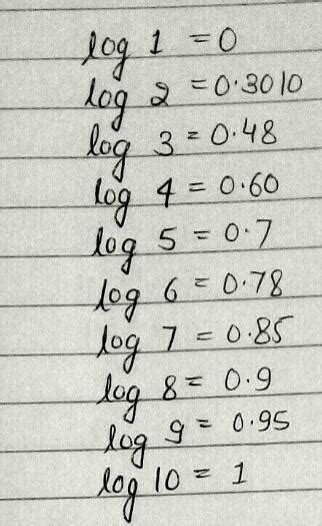 log 1 = 0
log 2 = 0.3010
log 3 = 0.48
log 4 = 0.60
log 5 = 0.7
log 6 = 0.78
log 7 = 0.85
log 8 = 0.9
log 9 = 0.95
log 10 = 1